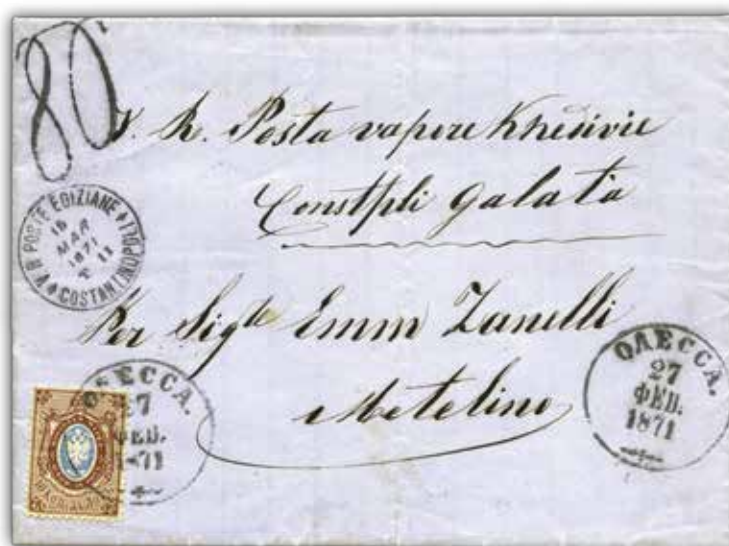 80
V. R. Posta vapore Khedivie
Constpli Galata
V. R. POSTE EGIZIANE COSTANTINOPOLI
15
MAR
1871
T 11
Per Sigre Emm Zanelli
Metelino
ОДЕССА.
27
ФЕВ.
1871
ОДЕССА.
27
ФЕВ.
1871